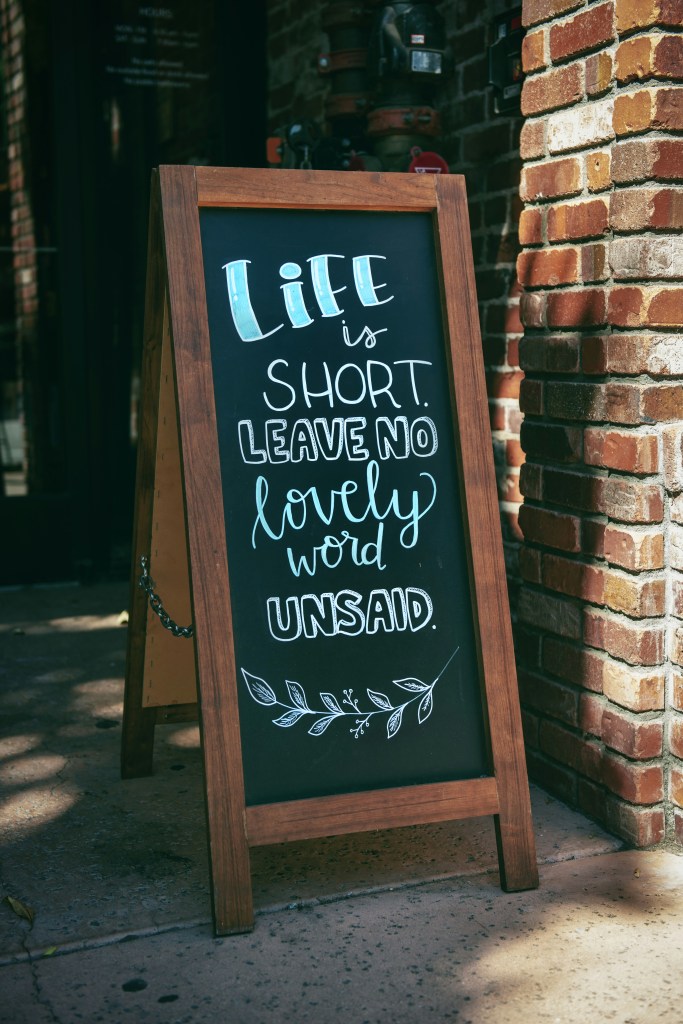 LiFE
is
SHORT.
LEAVE NO
lovely
word
UNSAID.
HOURS: